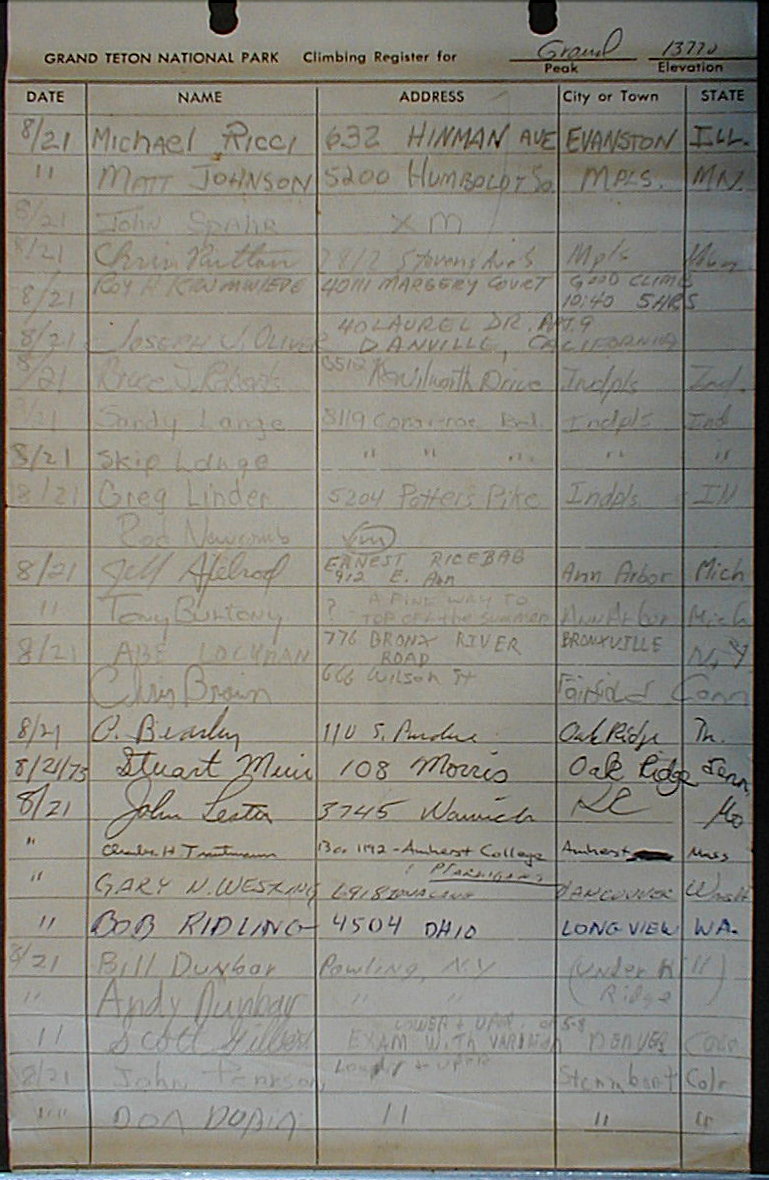 GRAND TETON NATIONAL PARK Climbing Register for Grand 13770
Peak Elevation
DATE NAME ADDRESS City or Town STATE
8/21 Michael Ricci 632 HINMAN AVE EVANSTON ILL.
" MATT JOHNSON 5200 HUMBOLDT So. MPLS. MN.
8/21 John Spahr
8/21 Chris Stevens Mpls
8/21 ROY 4011 MARGERY COURT GOOD CLIMB
10:40 5HRS
8/21 JOSEPH V. OLIVER 40 LAUREL DR. APT. 9
DANVILLE, CALIFORNIA
8/21 Bruce J. Roberts Kenilworth Drive Indpls Ind.
8/21 Sandy Lange 8119 Indpls Ind
8/21 Skip Lange " " " " "
8/21 Greg Linder 5204 Potters Pike Indpls IN
Rod Newcomb
8/21 Jeff ERNEST RICEBAG
912 E. Ann Ann Arbor Mich
" Tony ? A FINE WAY TO
TOP OFF the SUMMER Ann Arbor Mich
8/21 ABE 776 BRONX RIVER
ROAD BRONXVILLE N.Y
Chris Brown 666 Wilson St Fairfield Conn
8/21 110 S. Purdue Oak Ridge Tn.
8/21/73 Stuart Muir 108 Morris Oak Ridge Tenn.
8/21 John Lester 3745 Warwick KC Mo
" Charles H Trautmann Box 1192 - Amherst College Amherst Mass
PTARMIGANS
" GARY N. VANCOUVER Wash
" BOB RIDLING 4504 OHIO LONGVIEW WA.
8/21 Bill Dunbar Pawling, NY (Under Hill)
Ridge
" Andy Dunbar " "
LOWER + UPPER
" Scott EXAM WITH VARIATION DENVER Colo
8/21 John Steamboat Colo
"" DON " " "